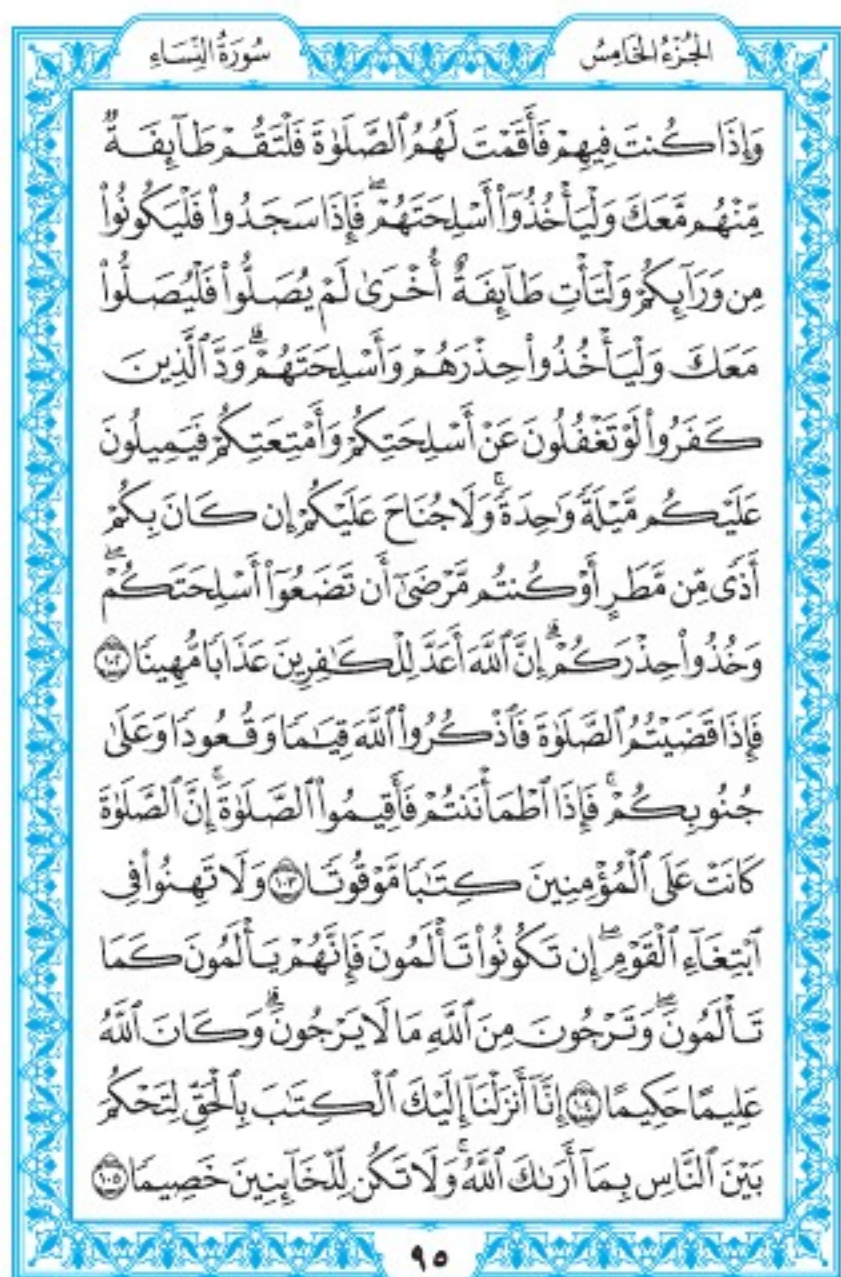 الجُزْءُ الخَامِسُ
سُورَةُ النِّسَاءِ
وَإِذَا كُنتَ فِيهِمْ فَأَقَمْتَ لَهُمُ ٱلصَّلَوٰةَ فَلْتَقُمْ طَآئِفَةٌ
مِّنْهُم مَّعَكَ وَلْيَأْخُذُوٓا۟ أَسْلِحَتَهُمْۖ فَإِذَا سَجَدُوا۟ فَلْيَكُونُوا۟
مِن وَرَآئِكُمْ وَلْتَأْتِ طَآئِفَةٌ أُخْرَىٰ لَمْ يُصَلُّوا۟ فَلْيُصَلُّوا۟
مَعَكَ وَلْيَأْخُذُوا۟ حِذْرَهُمْ وَأَسْلِحَتَهُمْۗ وَدَّ ٱلَّذِينَ
كَفَرُوا۟ لَوْ تَغْفُلُونَ عَنْ أَسْلِحَتِكُمْ وَأَمْتِعَتِكُمْ فَيَمِيلُونَ
عَلَيْكُم مَّيْلَةً وَٰحِدَةًۚ وَلَا جُنَاحَ عَلَيْكُمْ إِن كَانَ بِكُمْ
أَذًى مِّن مَّطَرٍ أَوْ كُنتُم مَّرْضَىٰٓ أَن تَضَعُوٓا۟ أَسْلِحَتَكُمْۖ
وَخُذُوا۟ حِذْرَكُمْۗ إِنَّ ٱللَّهَ أَعَدَّ لِلْكَٰفِرِينَ عَذَابًا مُّهِينًا ١٠٢
فَإِذَا قَضَيْتُمُ ٱلصَّلَوٰةَ فَٱذْكُرُوا۟ ٱللَّهَ قِيَٰمًا وَقُعُودًا وَعَلَىٰ
جُنُوبِكُمْۚ فَإِذَا ٱطْمَأْنَنتُمْ فَأَقِيمُوا۟ ٱلصَّلَوٰةَۚ إِنَّ ٱلصَّلَوٰةَ
كَانَتْ عَلَى ٱلْمُؤْمِنِينَ كِتَٰبًا مَّوْقُوتًا ١٠٣ وَلَا تَهِنُوا۟ فِى
ٱبْتِغَآءِ ٱلْقَوْمِۖ إِن تَكُونُوا۟ تَأْلَمُونَ فَإِنَّهُمْ يَأْلَمُونَ كَمَا
تَأْلَمُونَۖ وَتَرْجُونَ مِنَ ٱللَّهِ مَا لَا يَرْجُونَۗ وَكَانَ ٱللَّهُ
عَلِيمًا حَكِيمًا ١٠٤ إِنَّآ أَنزَلْنَآ إِلَيْكَ ٱلْكِتَٰبَ بِٱلْحَقِّ لِتَحْكُمَ
بَيْنَ ٱلنَّاسِ بِمَآ أَرَىٰكَ ٱللَّهُۚ وَلَا تَكُن لِّلْخَآئِنِينَ خَصِيمًا ١٠٥
٩٥